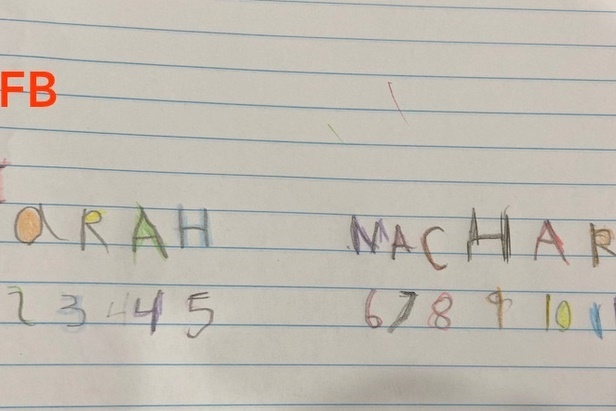 FB
aRAH NACHAR
2 3 4 4 5 6 7 8 9 10 11